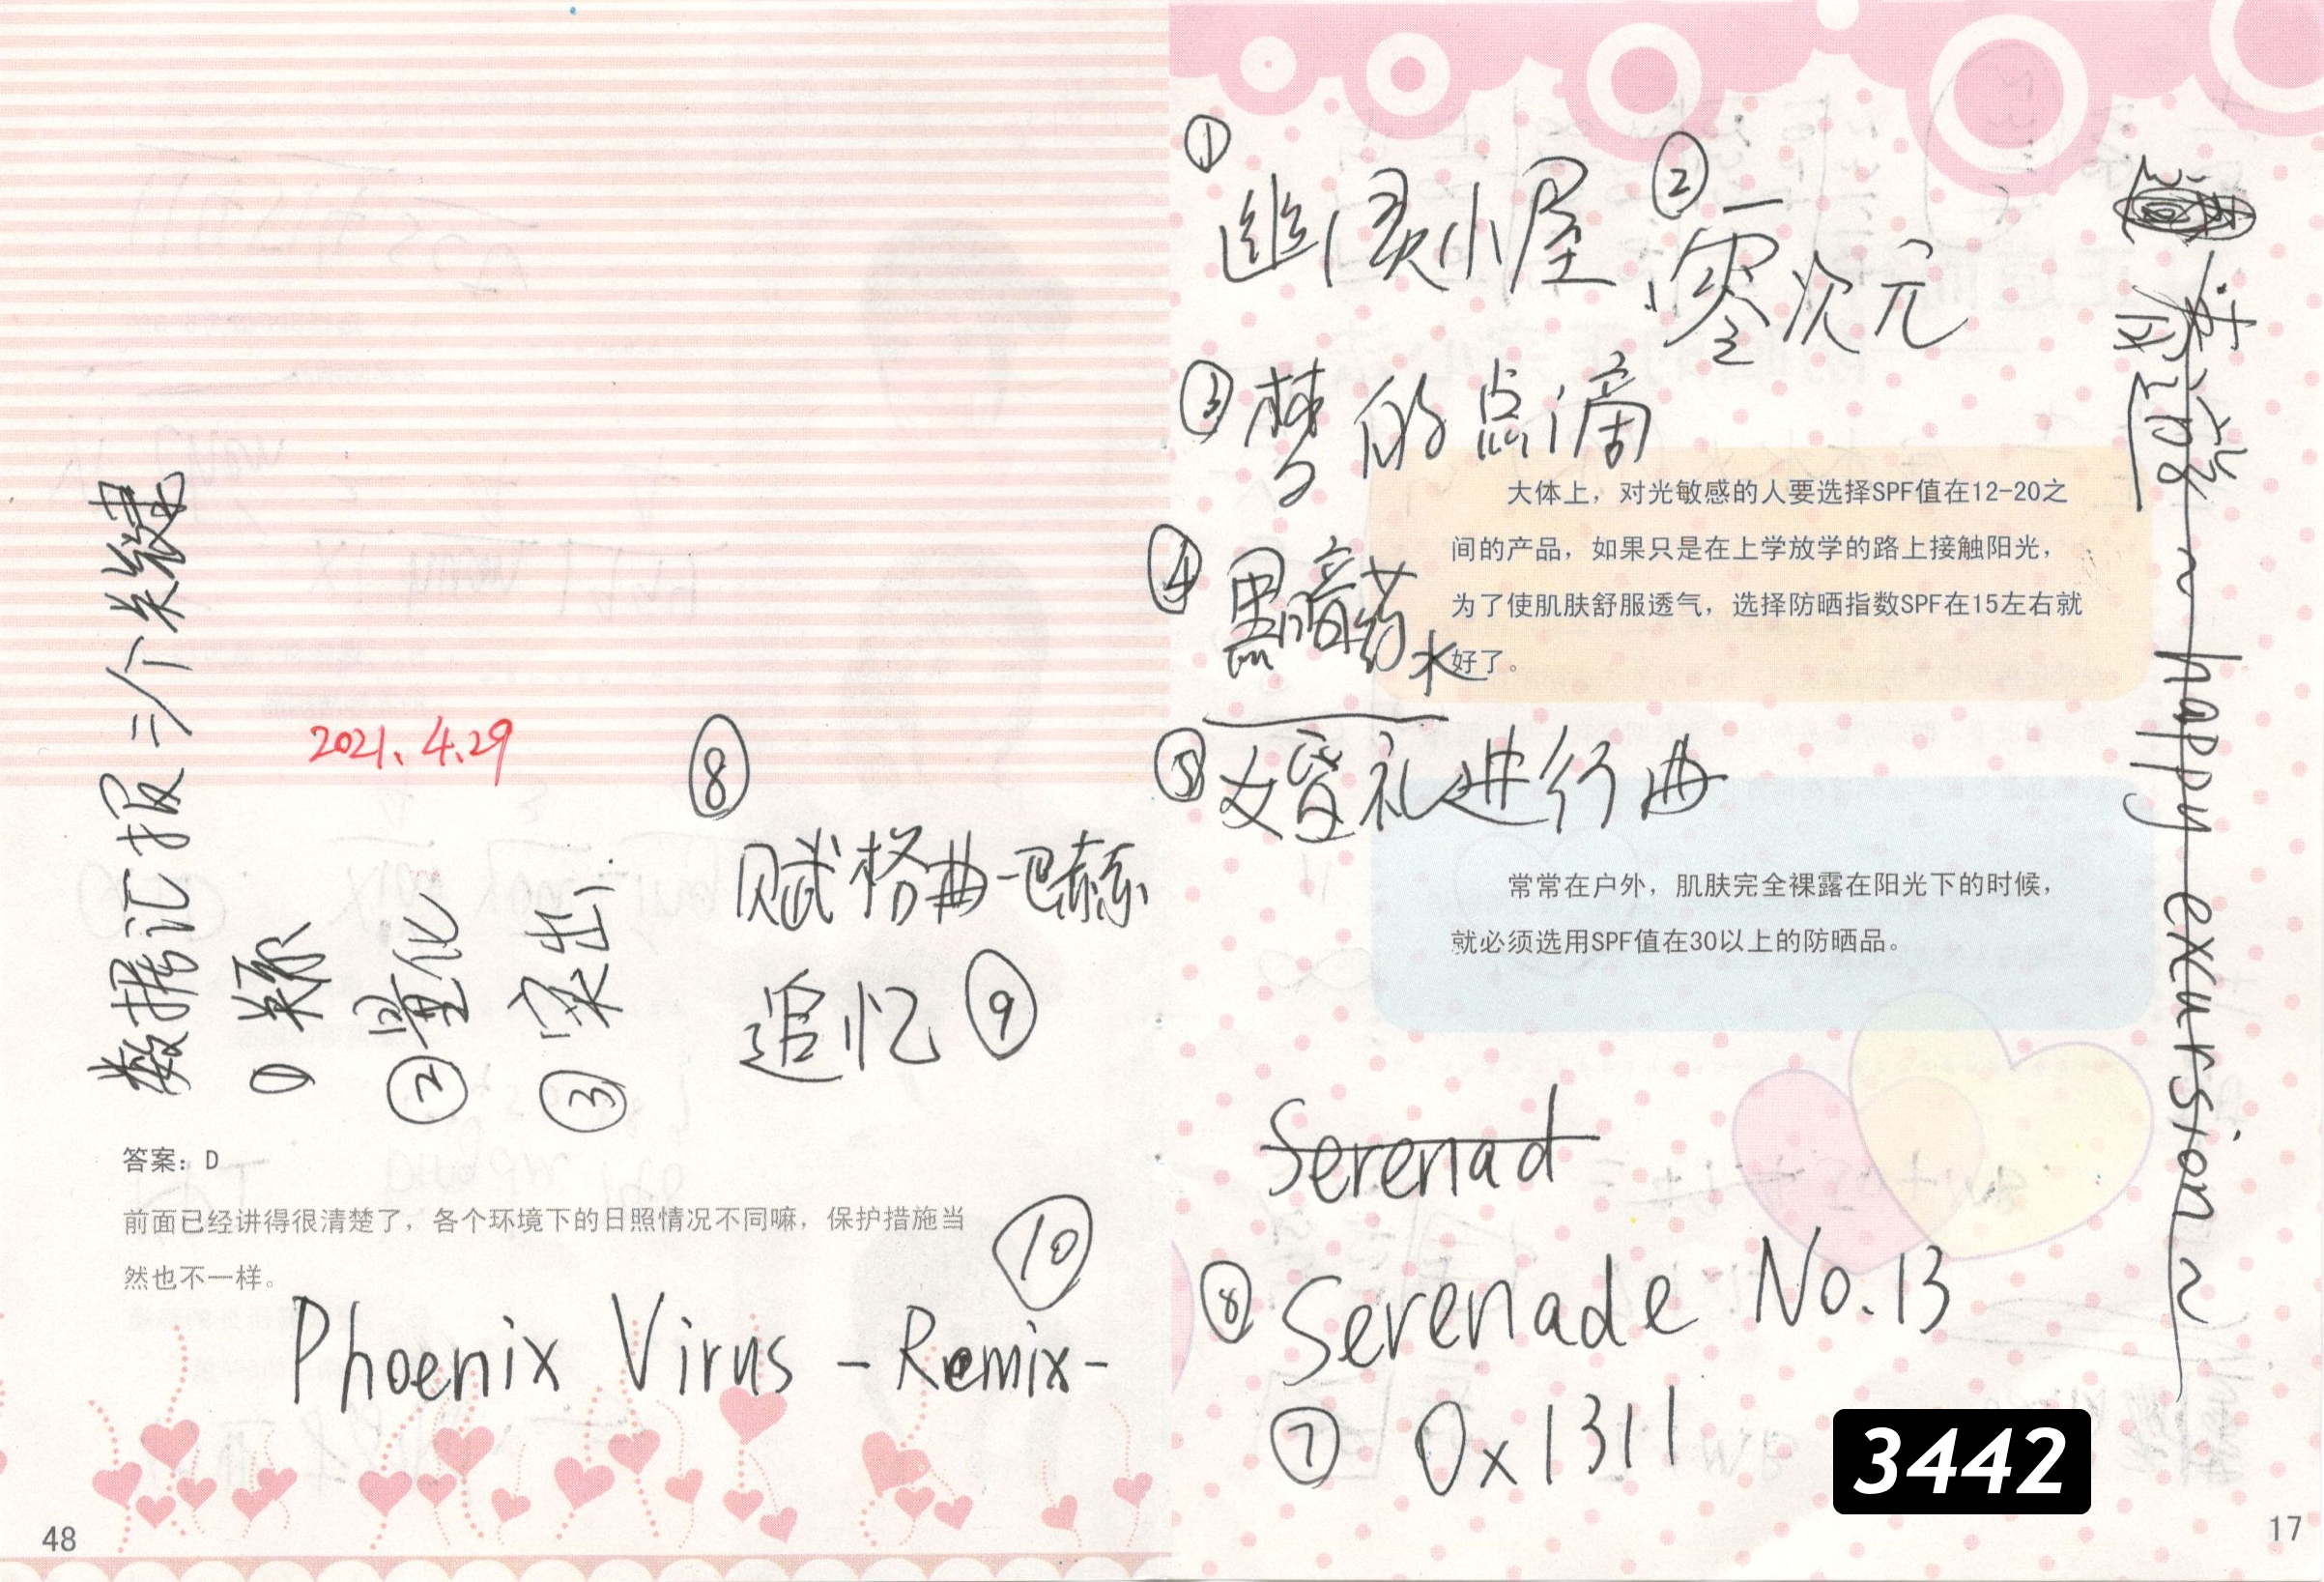 数据汇报三个关键
① 关系
② 量化
③ 突出
2021.4.29
⑧
赋格曲-巴赫
追忆 ⑨
答案：D
前面已经讲得很清楚了，各个环境下的日照情况不同嘛，保护措施当
然也不一样。
⑩
Phoenix Virus -Remix-
48
①
追忆小屋
②
零次元
③ 梦的点滴
大体上，对光敏感的人要选择SPF值在12-20之
间的产品，如果只是在上学放学的路上接触阳光，
为了使肌肤舒服透气，选择防晒指数SPF在15左右就
好了。
④ 黑暗药水
⑤ 婚礼进行曲
常常在户外，肌肤完全裸露在阳光下的时候，
就必须选用SPF值在30以上的防晒品。
Serenad
⑥ Serenade No.13
⑦ 0x1311
~ happy exursion ~
3442
17